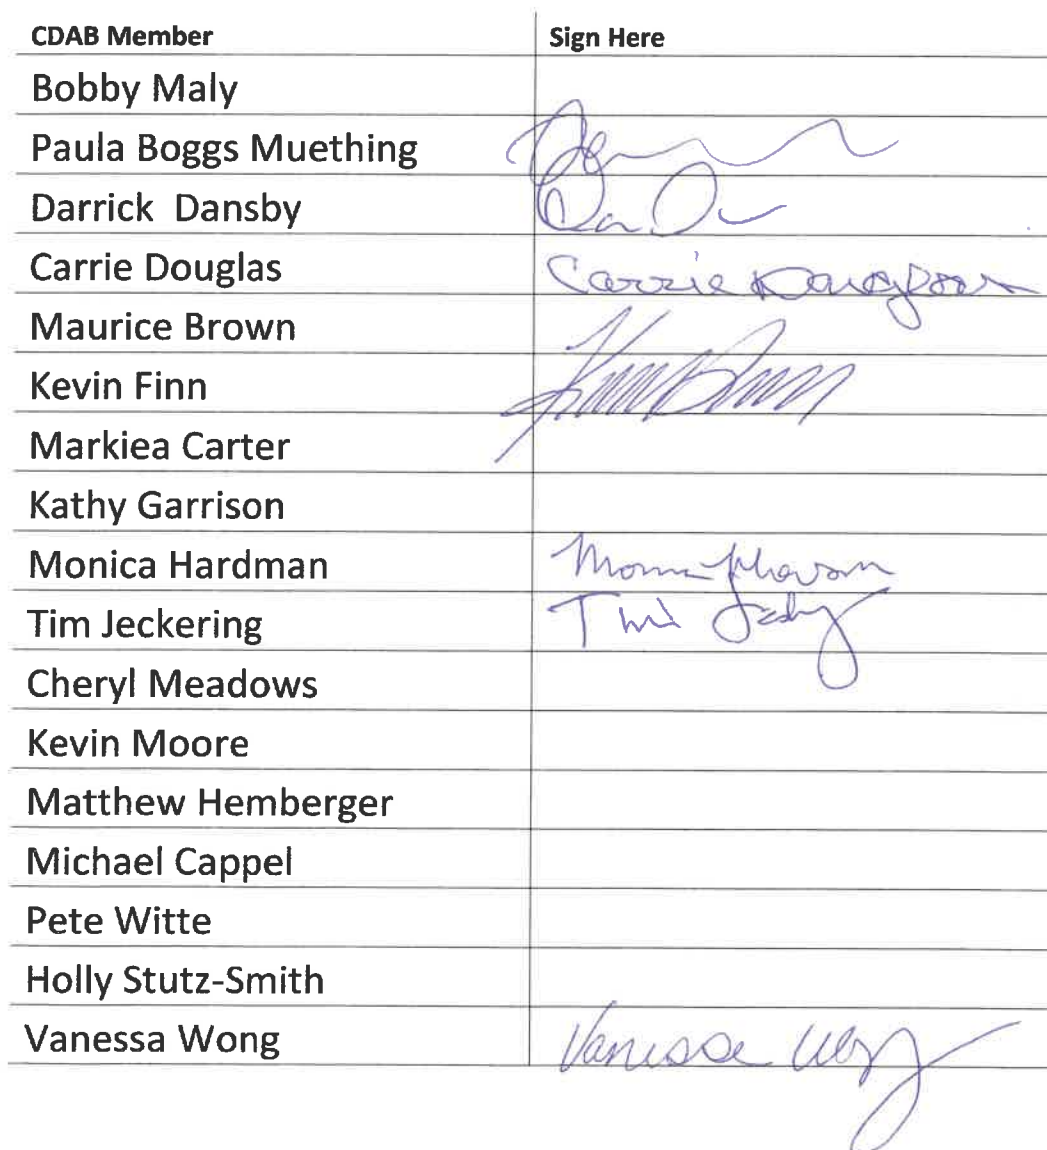 CDAB Member Sign Here
Bobby Maly
Paula Boggs Muething
Darrick Dansby
Carrie Douglas Carrie
Maurice Brown
Kevin Finn
Markiea Carter
Kathy Garrison
Monica Hardman
Tim Jeckering Tim
Cheryl Meadows
Kevin Moore
Matthew Hemberger
Michael Cappel
Pete Witte
Holly Stutz-Smith
Vanessa Wong Vanessa Wong